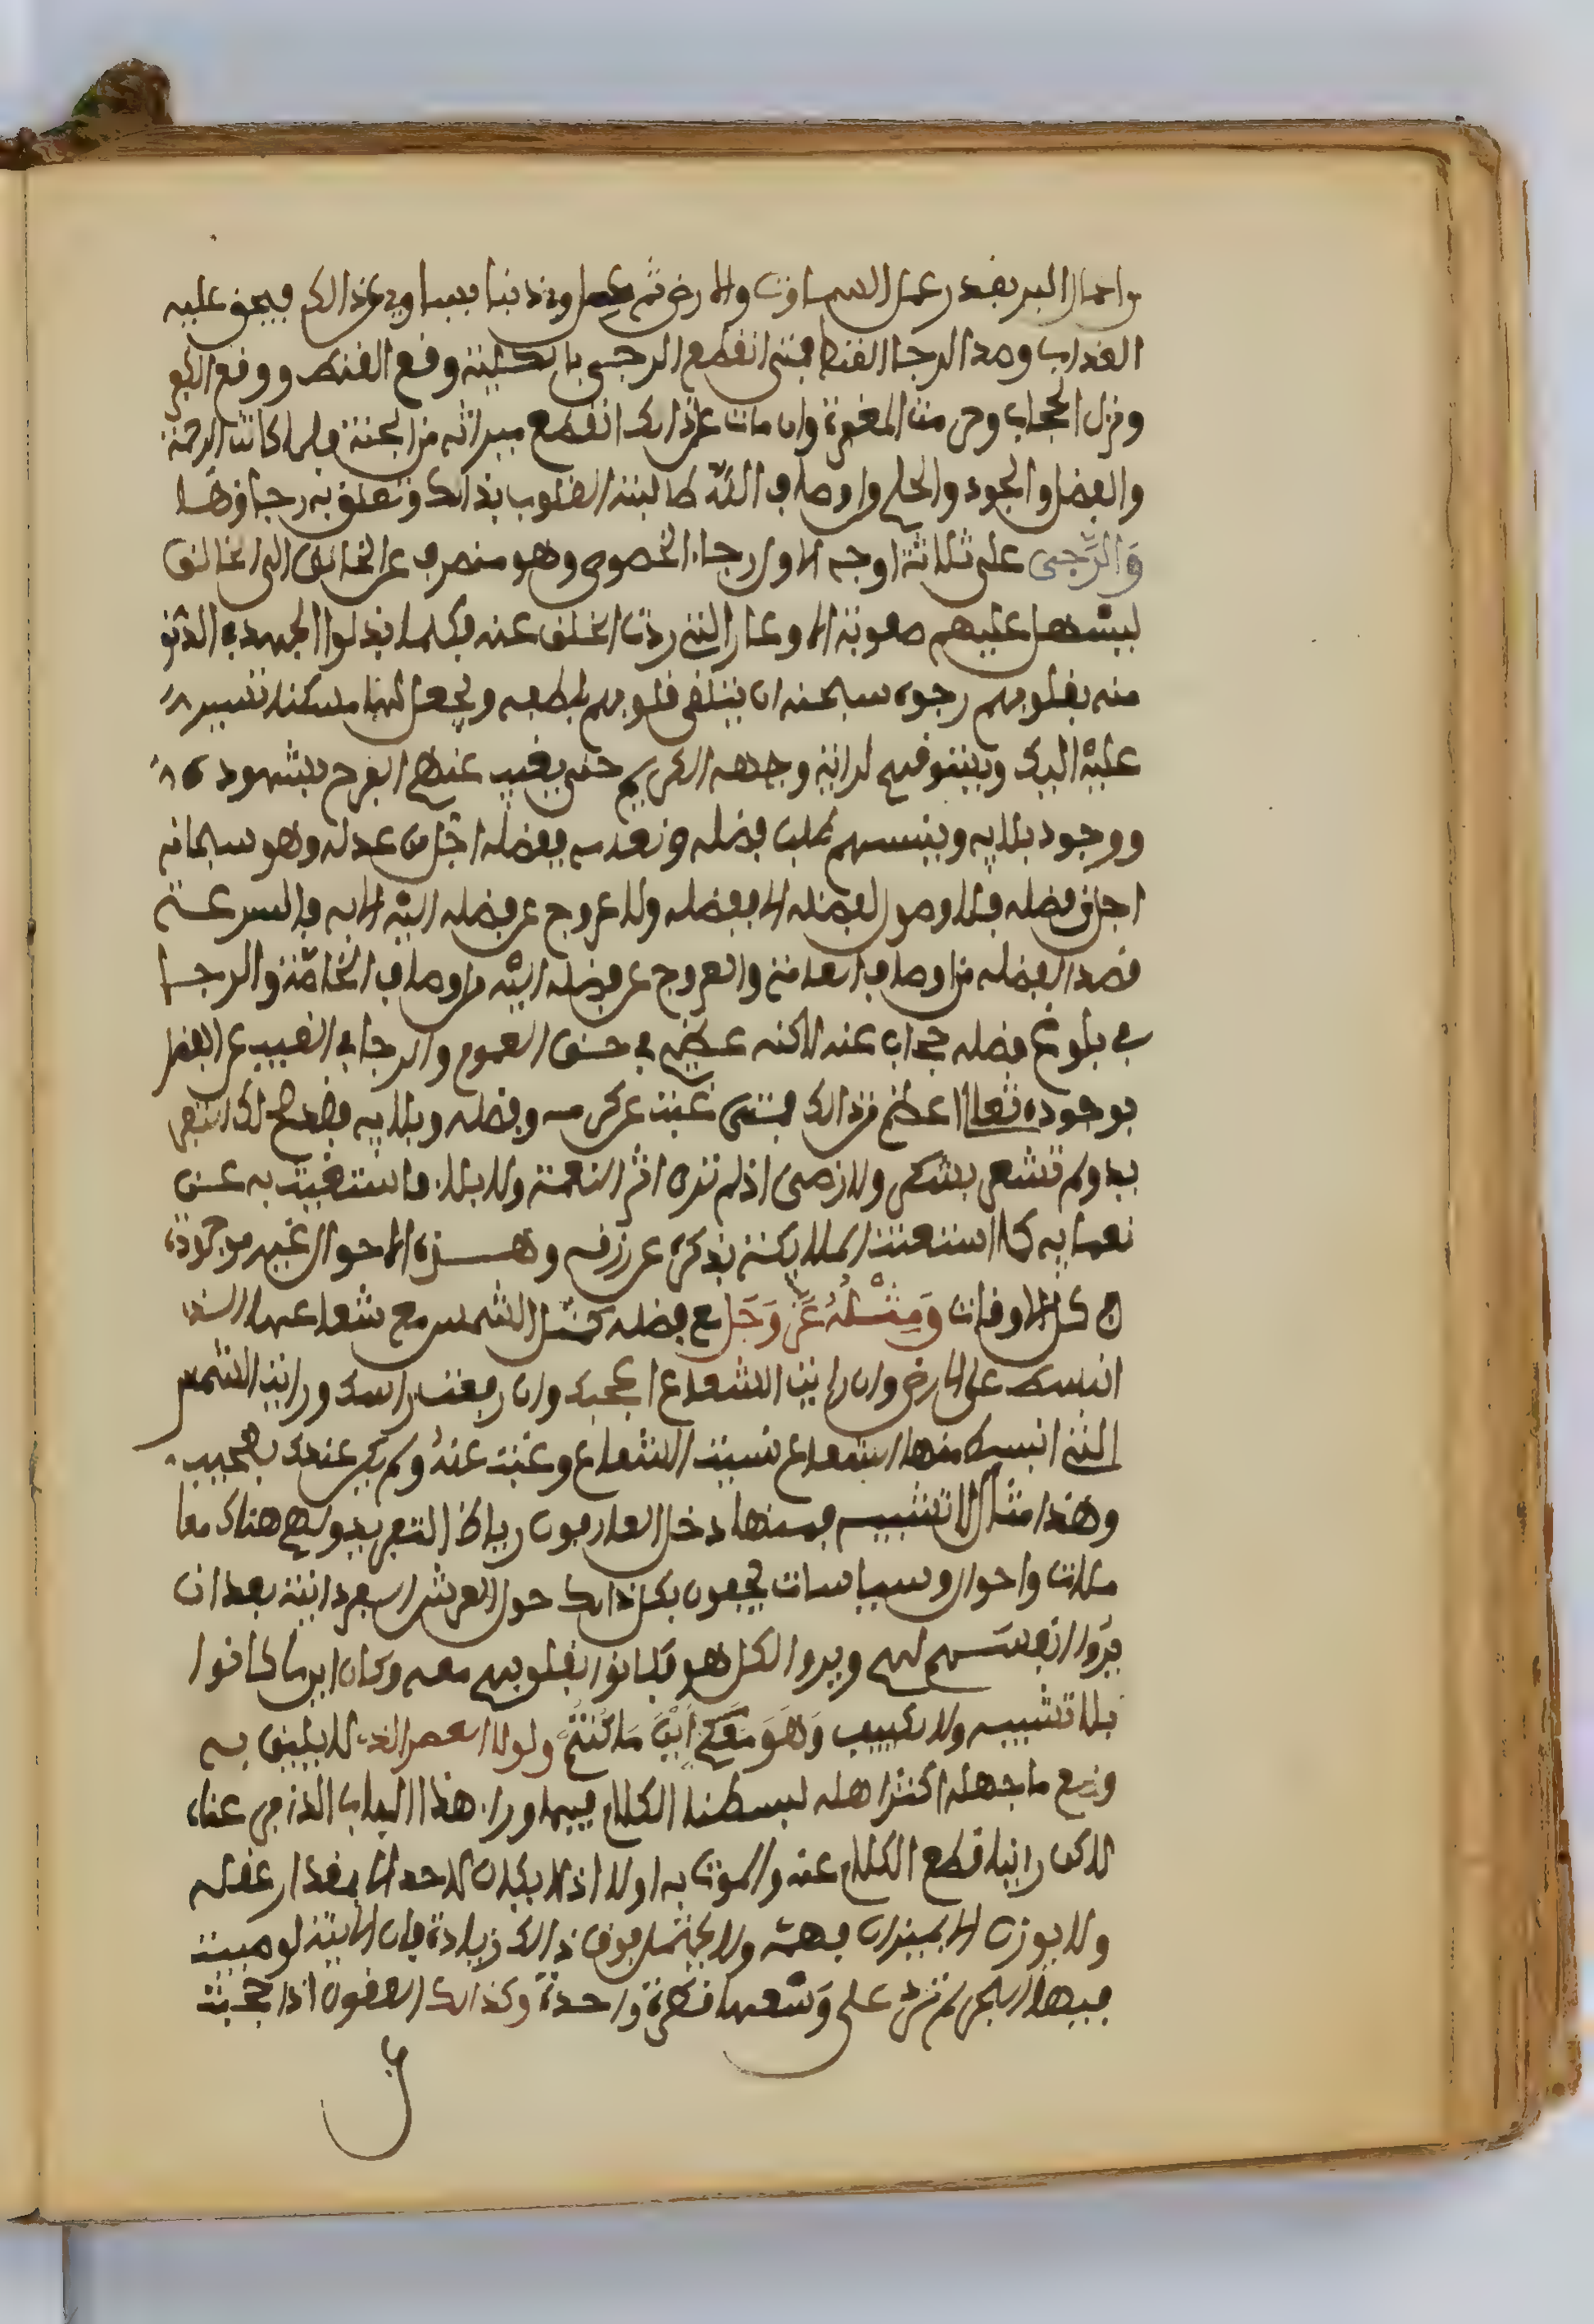 من اعمال البر بقدر عمل السماوات والارض ثم عمل ذنبا يساوي ذالك فيحق عليه
العذاب وضد الرجا القنط فمتى انقطع الرجى بالكلية وقع القنط ووقع الكفر
ونزل الحجاب وحرمت المغفرة وان مات على ذالك انقطع ميراثه من الجنة ولما كانت الرحمة
والفضل والجود والحلم اوصاف الله طالبته القلوب بذالك وتعلق به رجاؤها
وَالرَّجى على ثلاثة اوجه الاول رجاء الخصوص وهو منصرف عن الخلائق الى الخالق
ليسهل عليهم صعوبة الاوعار التي ردت الخلق عنه فكلما بذلوا الجهد في الدنو
منه بقلوبهم رجوه سبحنه ان يتلقى قلوبهم بلطفه ويجعل لها مسكنا تسير
عليه اليه ويشوقهم لرؤية وجهه الكريم حتى يغيب عنهم الفرح بشهوده
ووجود بلايه وينسيهم طلب فضله ونعمه ففضله اجل من عدله وهو سبحانه
اجل من فضله فلا وصول لفضله الا بفضله ولا عروج عن فضله اليه الا به فالسرعة
قصد الفضله من اوصاف العامة والعروج عن فضله اليه من اوصاف الخاصة والرجا
في بلوغ فضله حجاب عنه لاكنه عظيم في حق العموم والرجا في الغيب عن الفضل
بوجوده تعالى اعظم من ذالك فمتى غبت عن كرمه وفضله وبلايه فقد صح لك التفر
يد ولم تشعر بشكر ولا رضى اذ لم تره اثر النعمة ولا بلاء فاستغنيت به عن
نعمايه كما استغنت الملايكة بذكره عن رزقه وهذه الاحوال غير موجودة
في كل الاوقات وَمِثْلُهُ عَزَّ وَجَل مع فضله كمثل الشمس مع شعاعها الذي
انبسط على الارض وان رايت الشعاع اعجبك وان رفعت راسك ورايت الشمس
التي انبسط منها الشعاع نسيت الشعاع وغبت عنهُ ولم يكن عندك بعجيب
وهذا مثال لا تشبيه فمنها دخل العارفون رياض التفريد ولهم هناك معا
ملات واحوال وسياسات يخفون بكل ذالك حول العرش الفردانية بعد ان
يرَوا انفسهم لهم ويروا الكل هو فكانوا بقلوبهم معه وكان اين ما كانوا
بلا تشبيه ولا تكييف وَهُوَ مَعَكُم اَيْنَ مَا كُنتُم ولولا العصر الذي لا يليق به
وضع ما جهله اكثر اهله لبسطنا الكلام فيما وراء هذا الباب الذي من عناء
لاكن راينا قطع الكلام عنه والسكوت به اولا اذ لا يكال لاحد الا بمقدار عقله
ولا يوزن الا بميزان فهمه ولا يحتمل فوق ذالك زيادة فان الانية لو صببت
فيها البحر لم تزد على وَسْعها قطرة واحدة وكذالك العقول اذا مجت